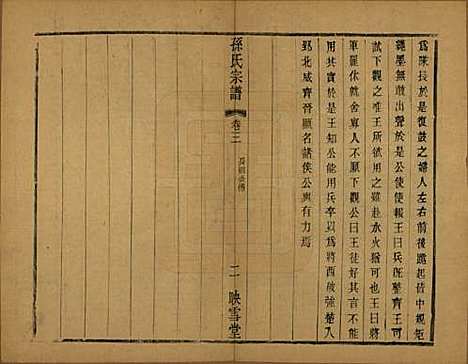 爲隊長於是復鼓之婦人左右前後跪起皆中規矩
繩墨無敢出聲於是公使使報王曰兵旣整齊王可
試下觀之唯王所欲用之雖赴水火猶可也王曰將
軍罷休就舍寡人不願下觀公曰王徒好其言不能
用其實於是王知公能用兵卒以爲將西破強楚入
郢北威齊晉顯名諸侯公與有力焉
孫氏宗譜
卷三
二
映雪堂